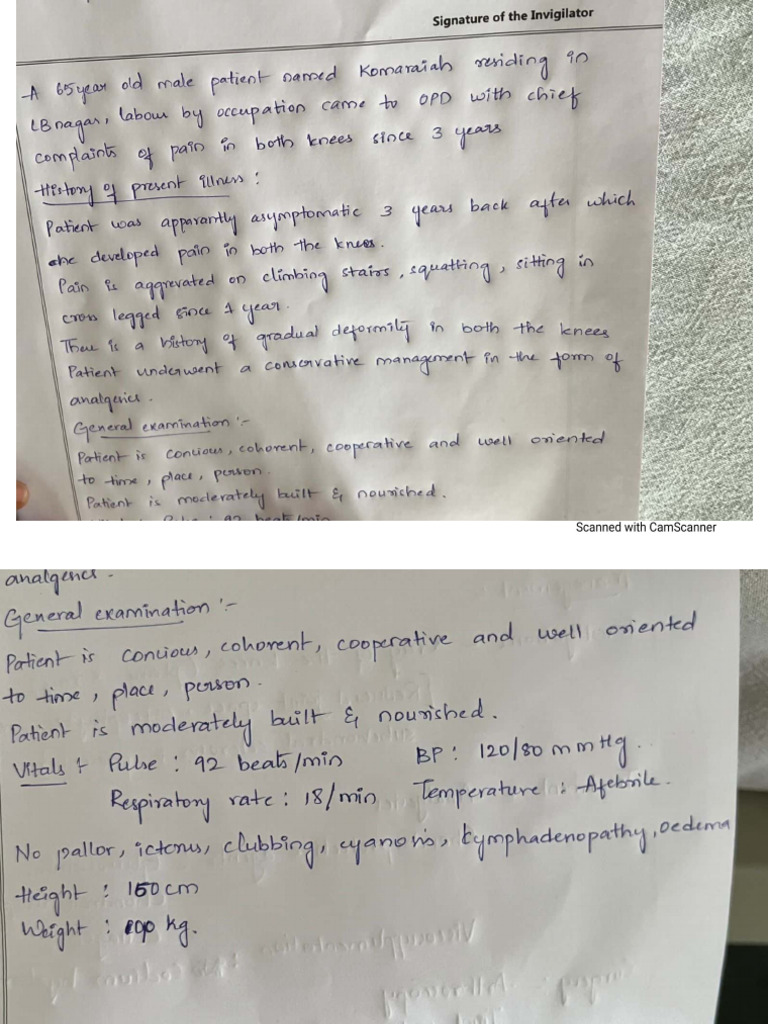 Signature of the Invigilator
A 65year old male patient named Komaraiah residing in
LBnagar, labour by occupation came to OPD with chief
complaints of pain in both knees since 3 years
History of present illness :
Patient was apparantly asymptomatic 3 years back after which
she developed pain in both the knees.
Pain is aggrevated on climbing stairs, squatting, sitting in
cross legged since 1 year.
There is a history of gradual deformity in both the knees
Patient underwent a conservative management in the form of
analgesics.
General examination :-
Patient is concious, cohorent, cooperative and well oriented
to time, place, person.
Patient is moderately built & nourished.
Pulse : 92 beat/min
Scanned with CamScanner
analgesics.
General examination :-
Patient is concious, cohorent, cooperative and well oriented
to time, place, person.
Patient is moderately built & nourished.
Vitals :- Pulse : 92 beats/min BP : 120/80 mmHg.
Respiratory rate : 18/min Temperature : Afebrile.
No pallor, icterus, clubbing, cyanosis, Lymphadenopathy, oedema
Height : 150 cm
Weight : kg.